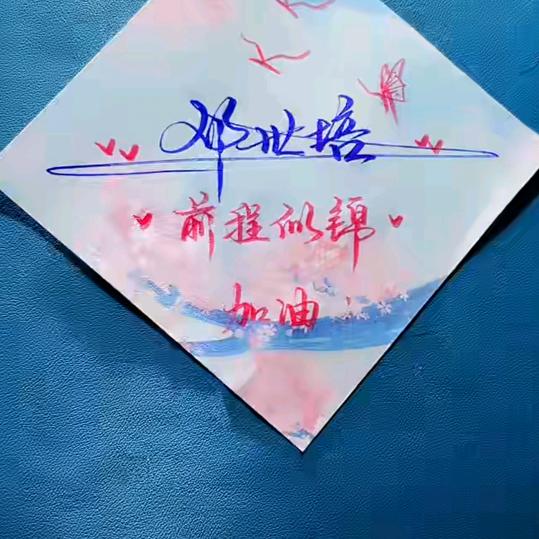 邓世培
前程似锦
加油